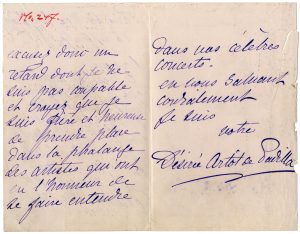 No. 247
excusez donc un
retard dont je ne
suis pas coupable
et croyez que je
suis fière et heureuse
de prendre place
dans la phalange
des artistes qui ont
eu l'honneur de
se faire entendre
dans vos célèbres
concerts.
en vous saluant
cordialement
je suis
votre
Désirée Artôt de Padilla